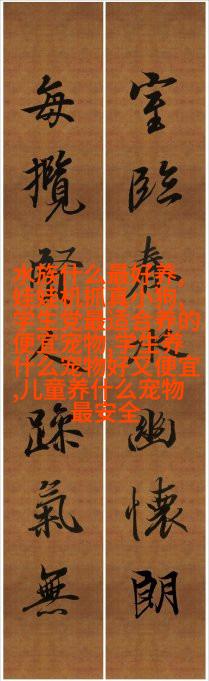 室臨春幽懷朗
每攬賢躁氣無
水族什么最好养,
娃娃机抓真小狗,
学生党最适合养的
便宜宠物,学生养
什么宠物好又便宜
,儿童养什么宠物
最安全